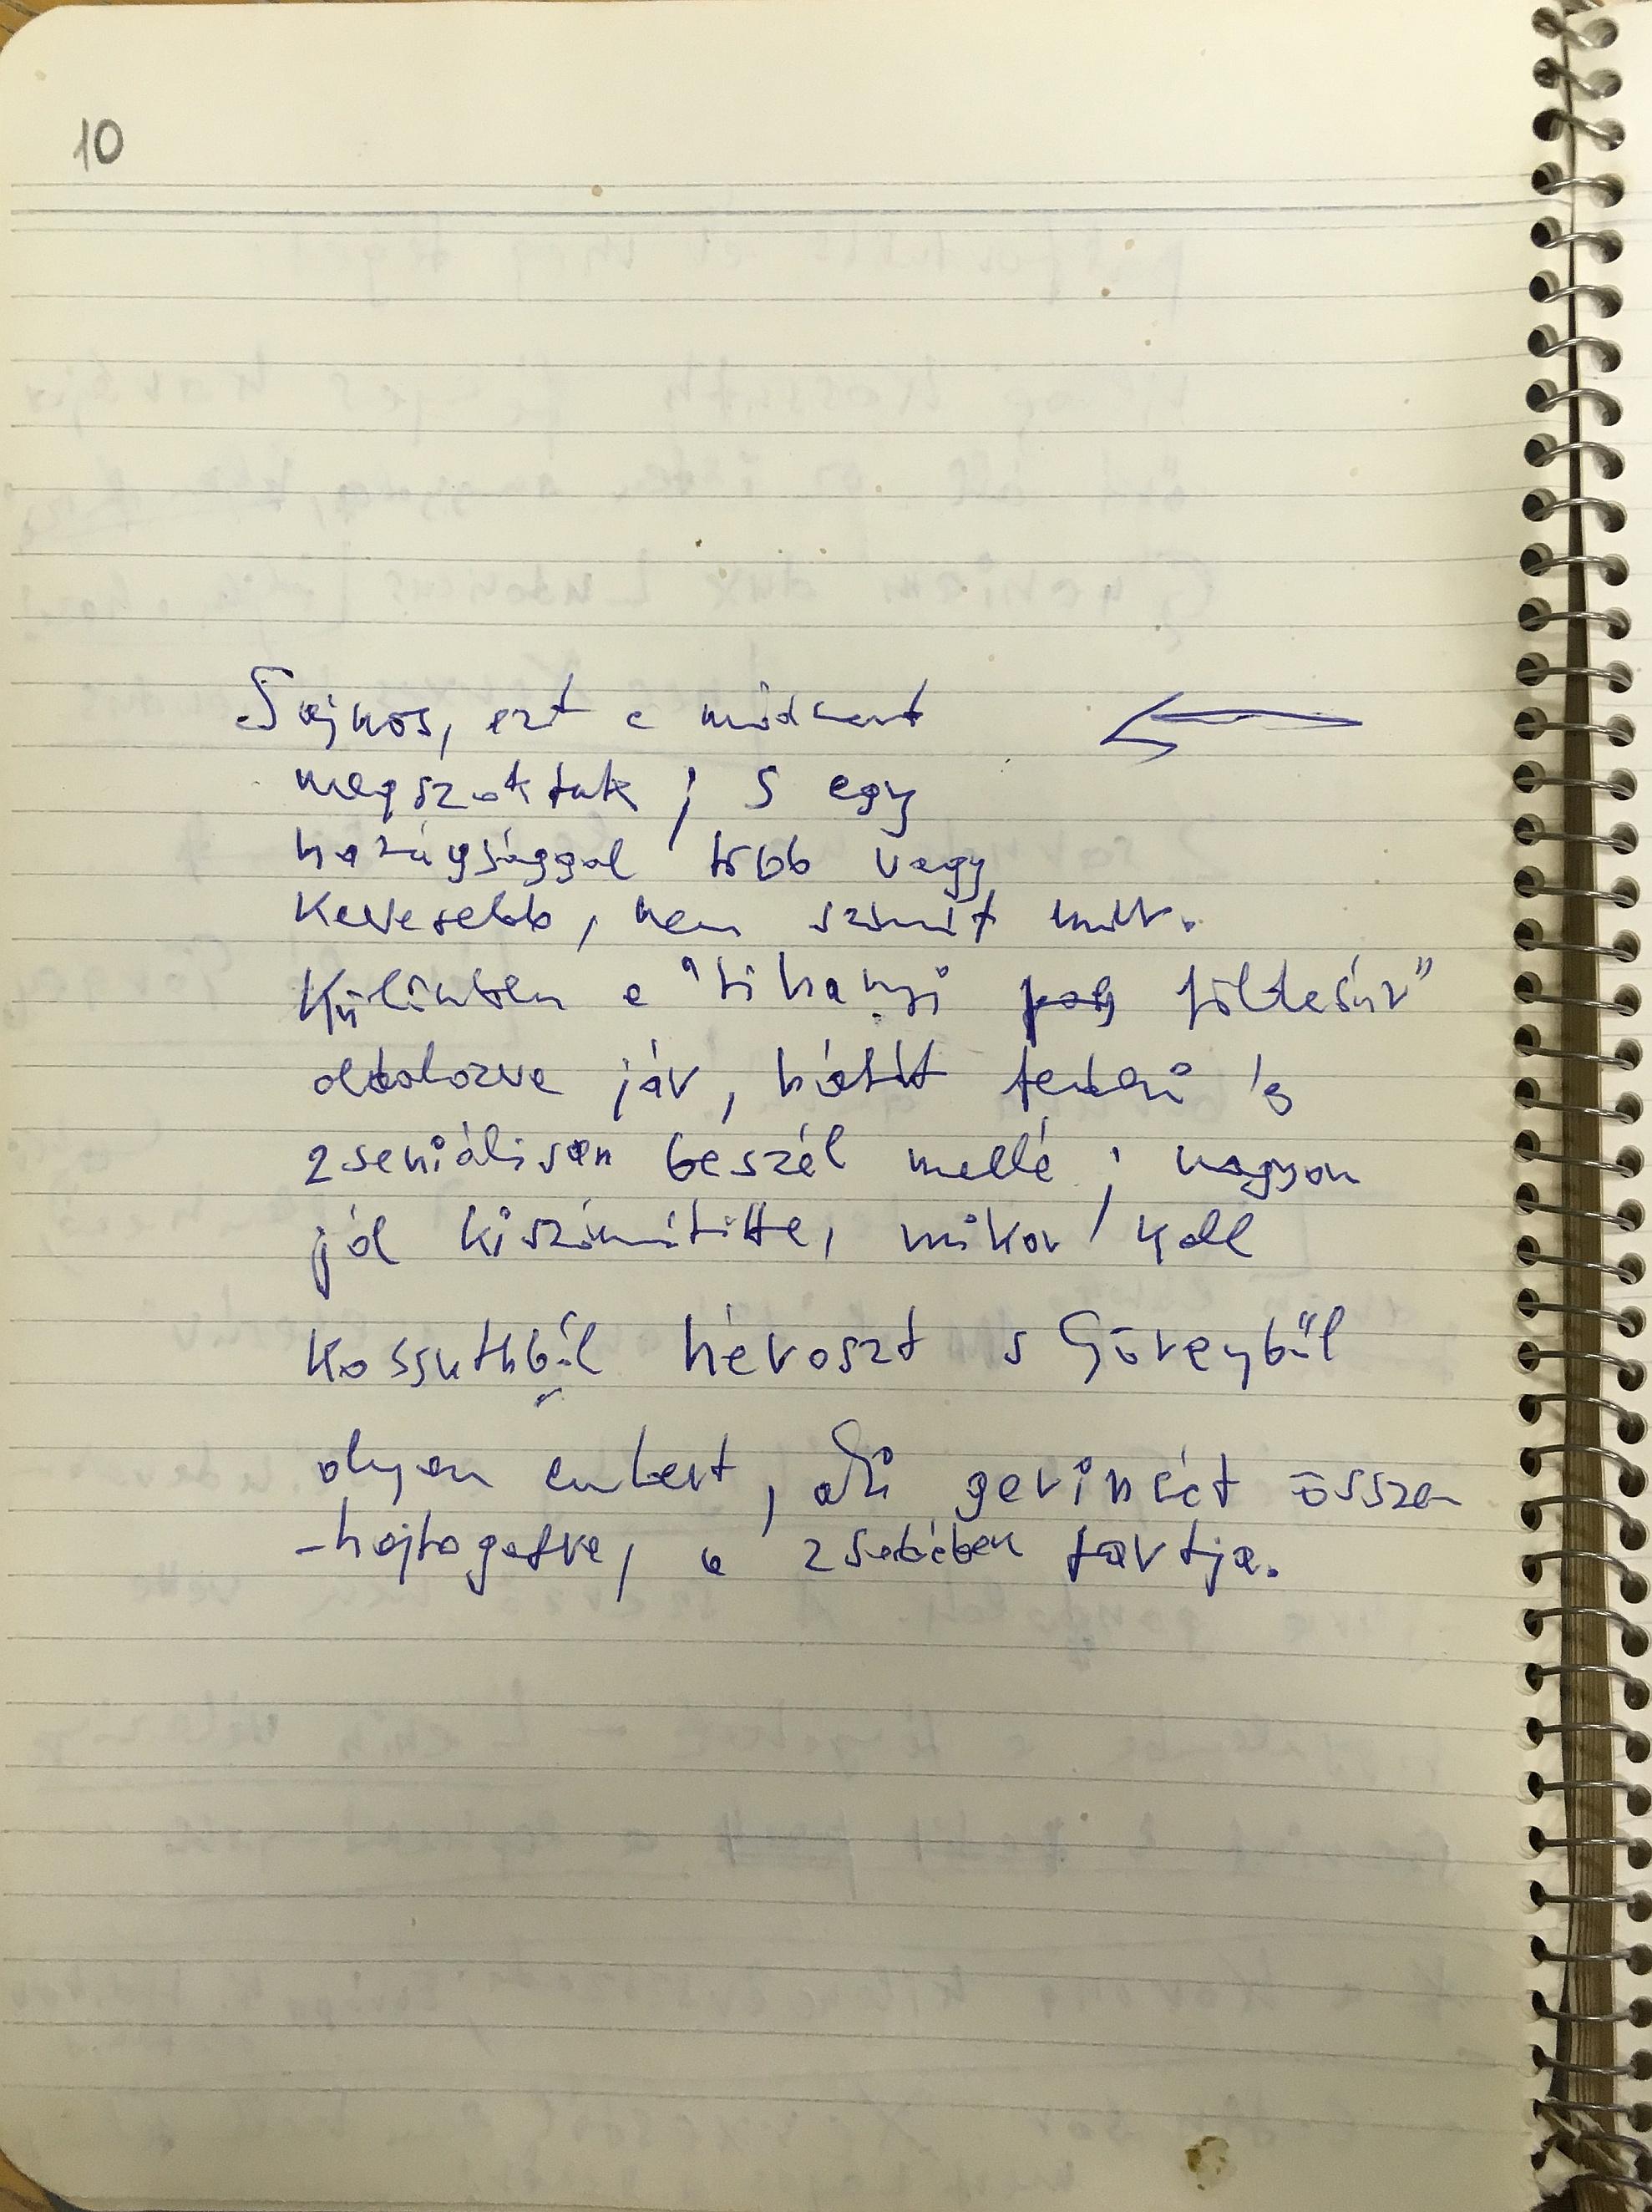 10
Sajnos, ezt a módszert
megszoktuk; s egy
hazugsággal több vagy
kevesebb, nem számít már.
Különben a "tihanyi földesúr"
oldalozva jár, hátat fordít és
zseniálisan beszél mellé; nagyon
jól kiszámította, mikor kell
Kossuthból héroszt s Görgeyből
olyan embert, aki gerincét össze-
-hajtogatva, a zsebében tartja.